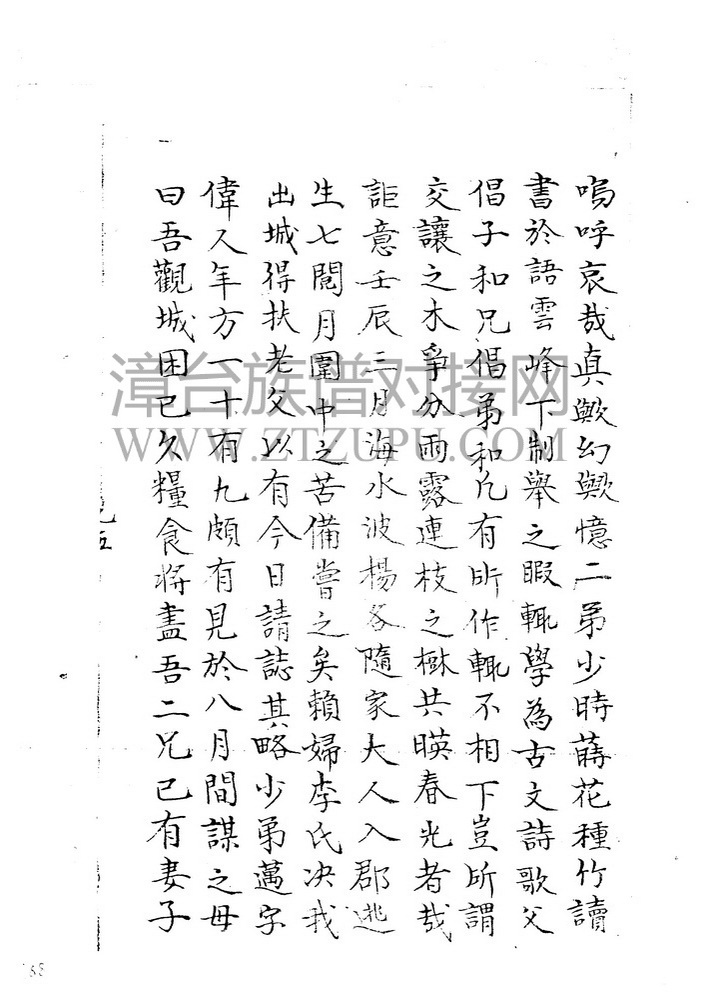 嗚呼哀哉真歟幻歟憶二弟少時蒔花種竹讀
書於語雲峰下制舉之暇輒學為古文詩歌父
倡子和兄倡弟和凡有所作輒不相下豈所謂
交讓之木爭分雨露連枝之樹共暎春光者哉
詎意壬辰三月海水波揚各隨家大人入郡逃
生七閱月圍中之苦備嘗之矣賴婦李氏决我
出城得扶老父以有今日請誌其略少弟邁字
偉人年方一十有九頗有見於八月間謀之母
曰吾觀城困已久糧食將盡吾二兄已有妻子
漳台族谱对接网
WWW.ZTZUPU.COM